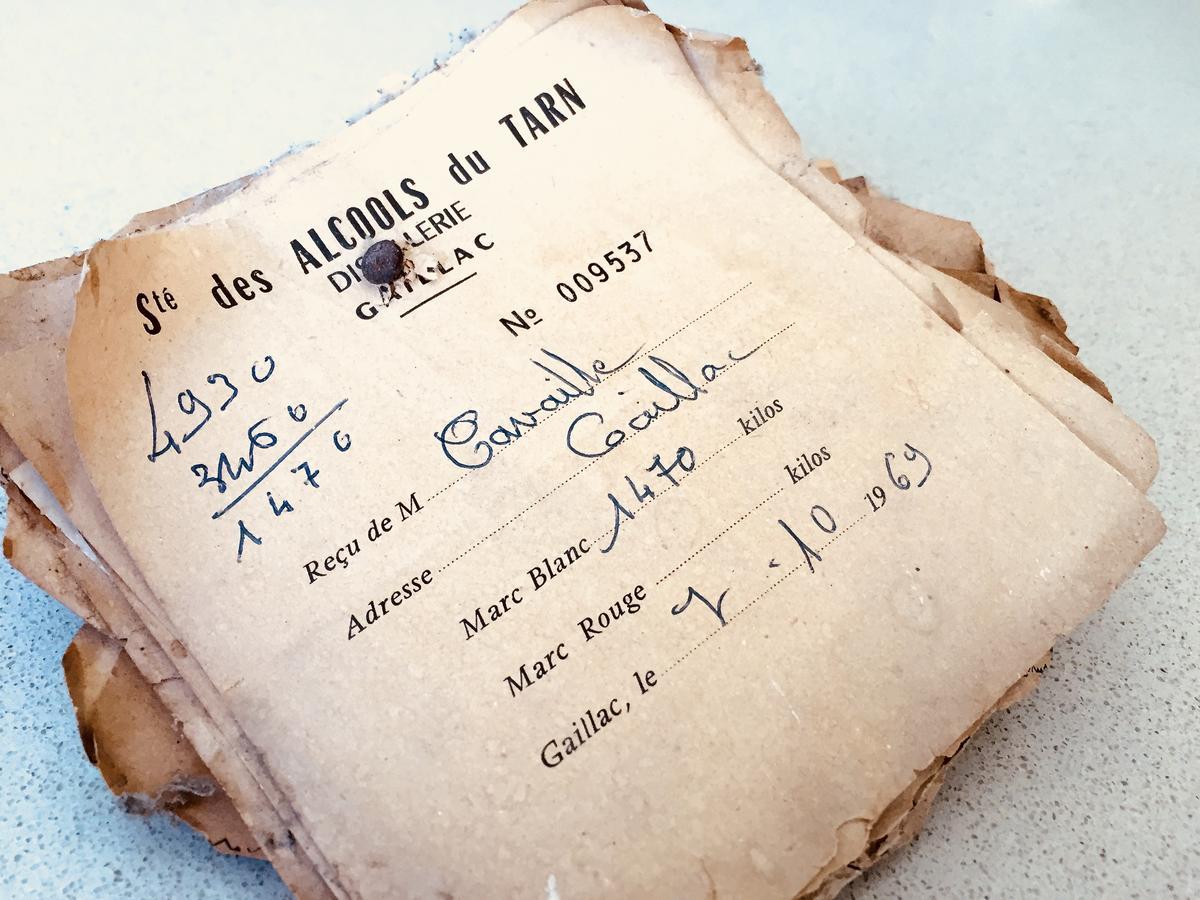 Sté des ALCOOLS du TARN
DISTILLERIE
GAILLAC
Nº 009537
4930
3460
1470
Reçu de M Cavaillé
Adresse Gaillac
Marc Blanc 1470 kilos
Marc Rouge kilos
Gaillac, le 7-10 1969